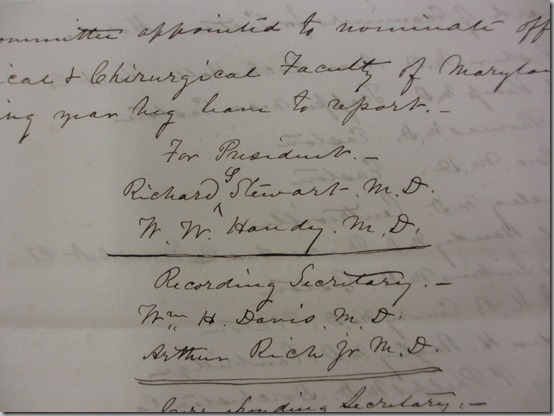 committee appointed to nominate off
ical & Chirurgical Faculty of Marylan
ing year beg leave to report. –
For President. –
Richard S Stewart. M. D.
W. W. Handy. M. D.
Recording Secretary. –
Wm H. Davis. M. D.
Arthur Rich Jr M. D.
Corresponding Secretary, –